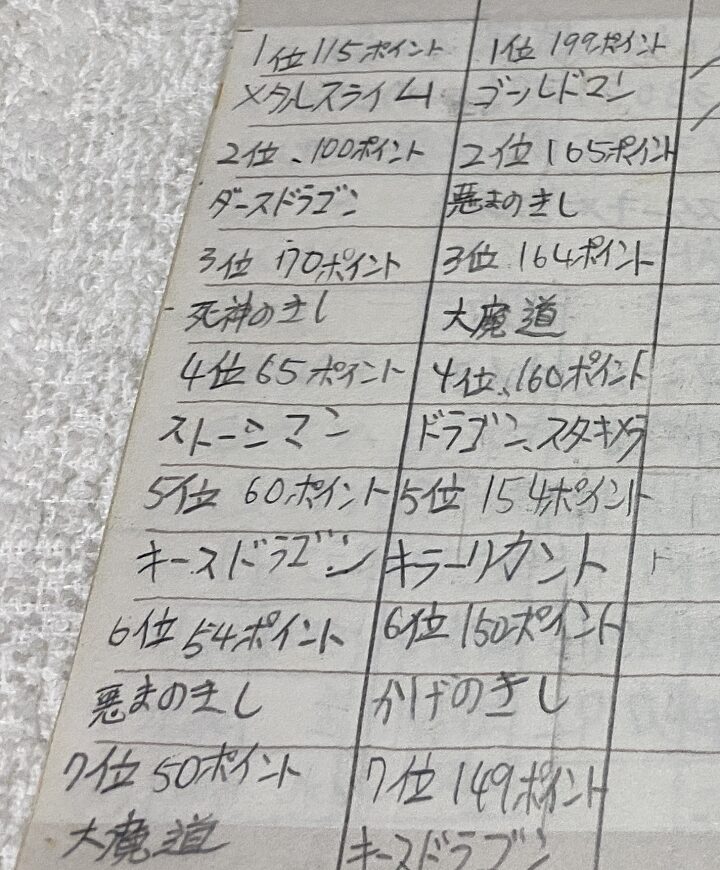 1位 115ポイント
メタルスライム
2位、100ポイント
ダースドラゴン
3位 70ポイント
死神のきし
4位 65ポイント
ストーンマン
5位 60ポイント
キースドラゴン
6位 54ポイント
悪まのきし
7位 50ポイント
大魔道
1位 199ポイント
ゴールドマン
2位 165ポイント
悪まのきし
3位 164ポイント
大魔道
4位、160ポイント
ドラゴン、スタキメラ
5位 154ポイント
キラーリカント
6位 150ポイント
かげのきし
7位 149ポイント
キースドラゴン